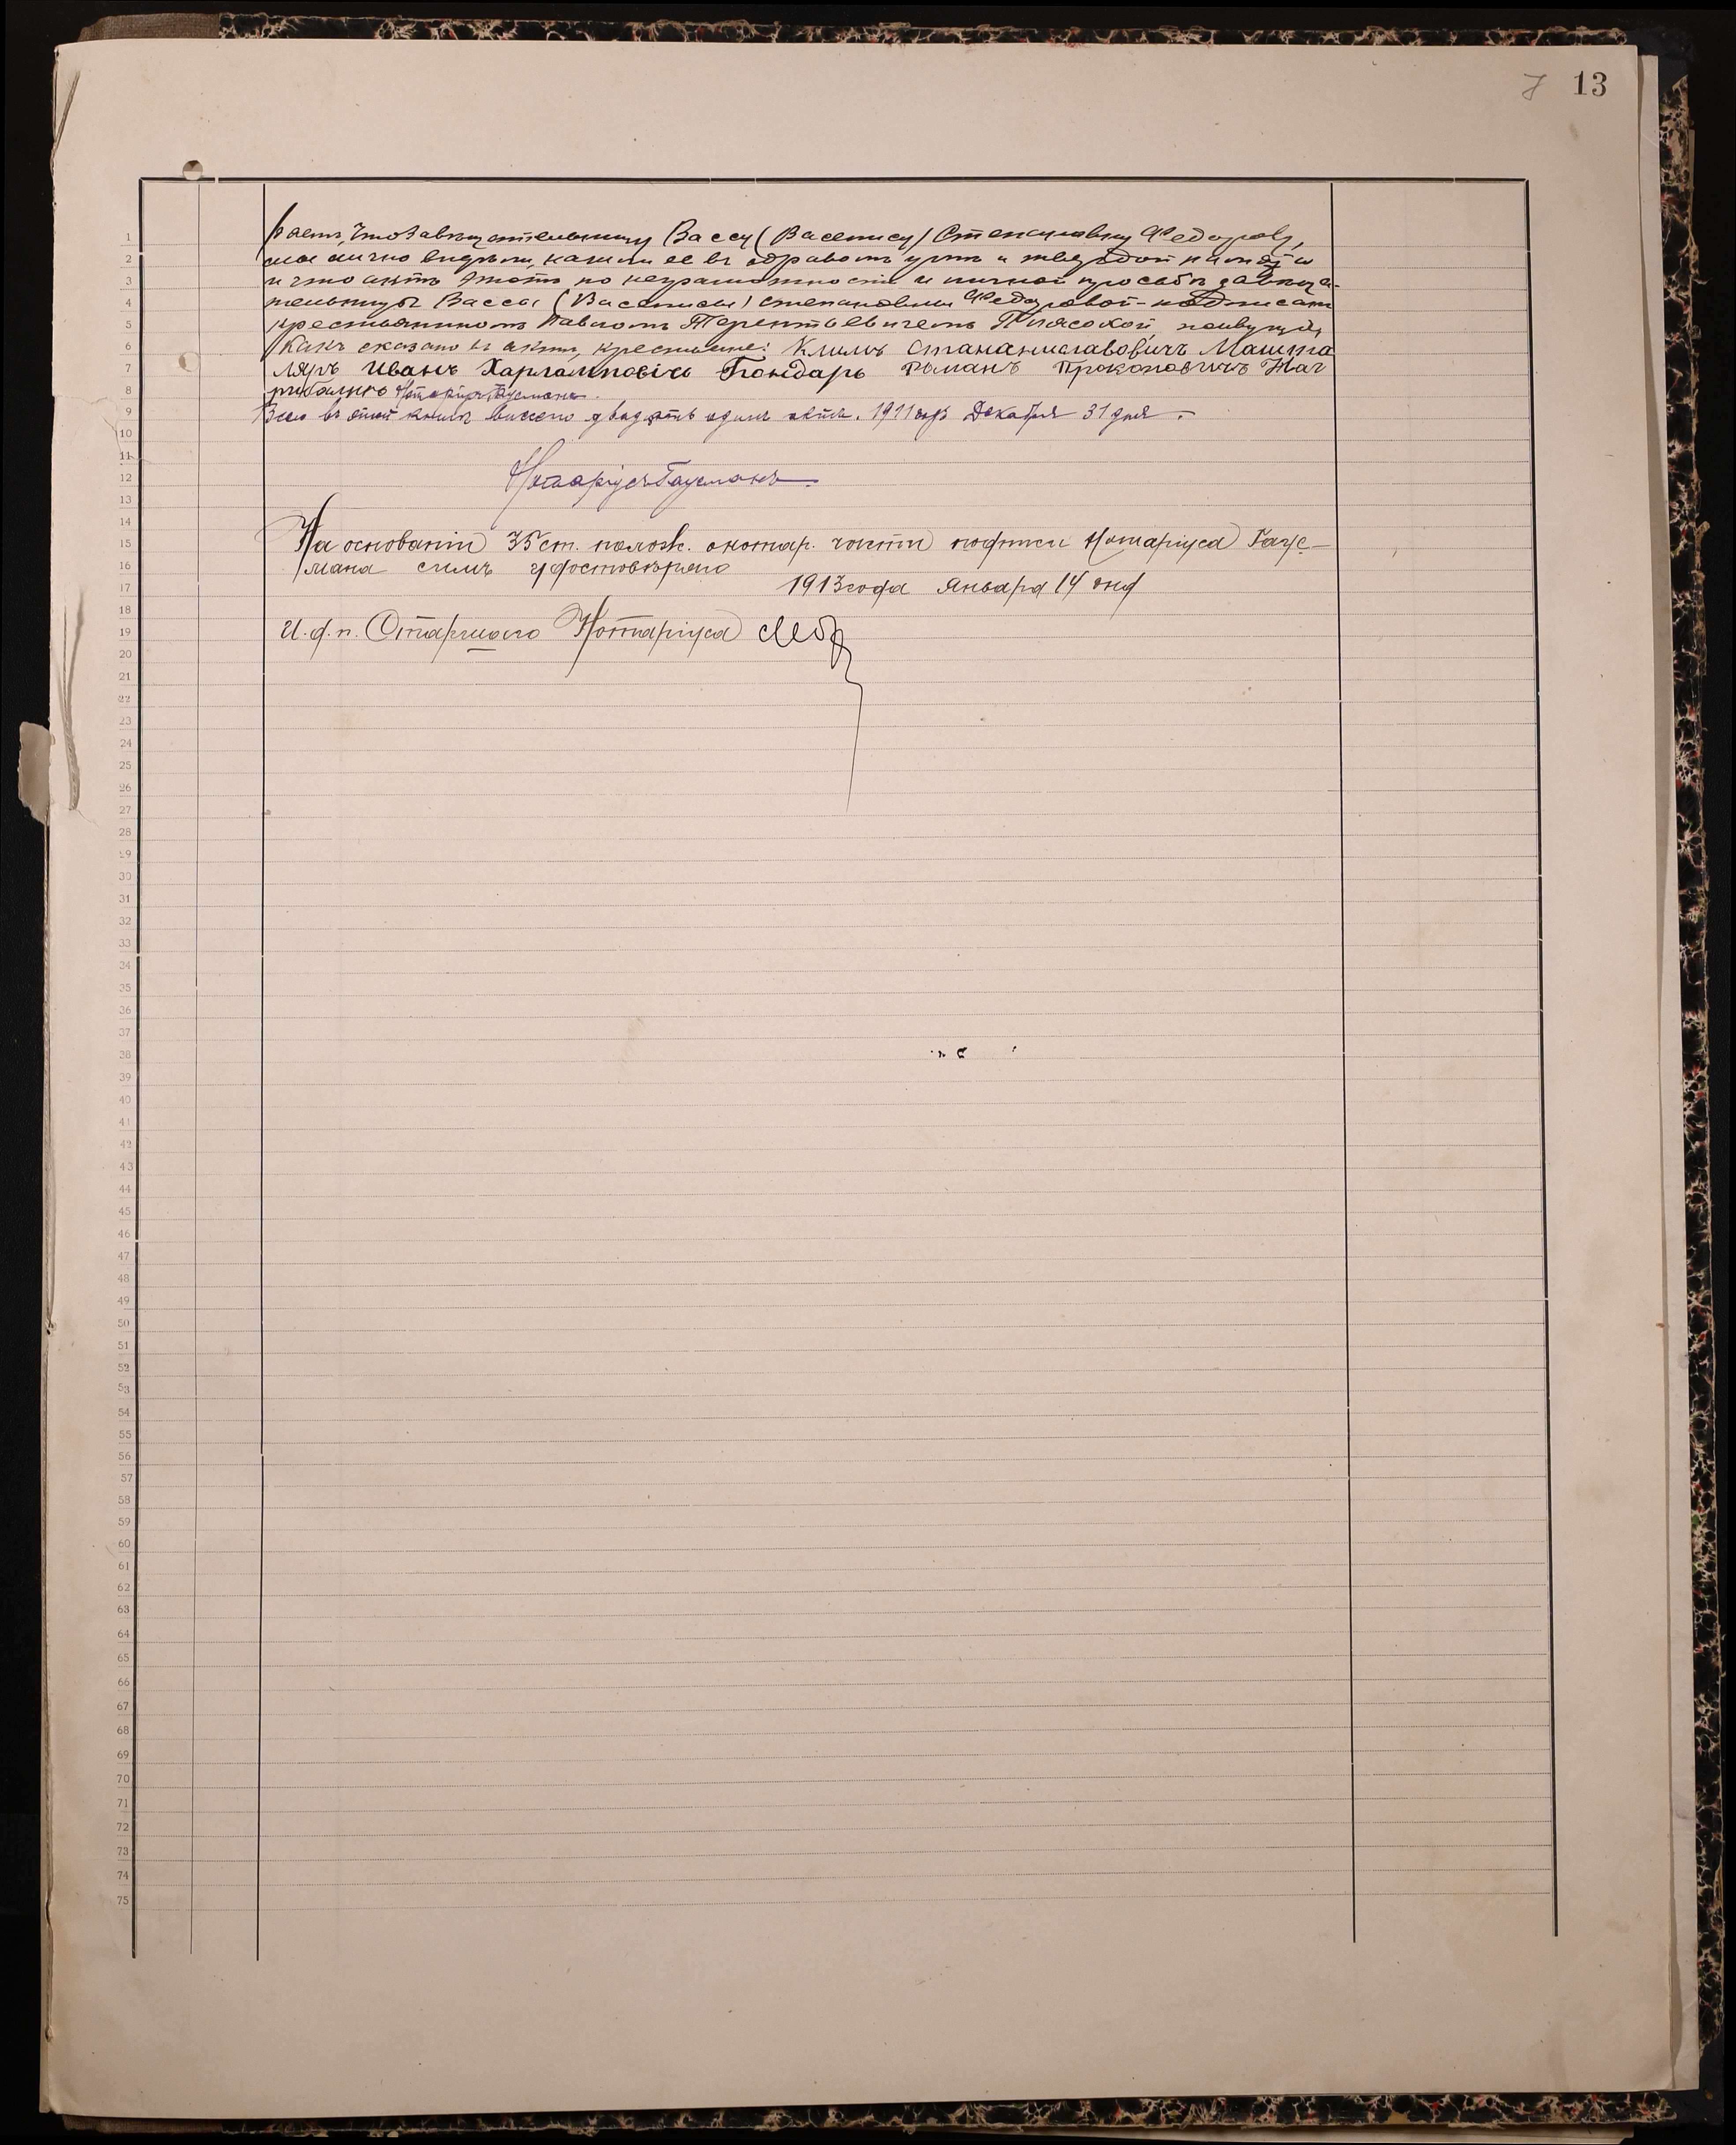 13
ваемъ, что завѣщательницу Вассу (Василису) Степановну Федорову,
мы лично видѣли, нашли ее въ здравомъ умѣ и твердой памяти
и что актъ этотъ по неграмотности и личной просьбѣ завѣща-
тельницы Вассы (Василисы) Степановны Федоровой - подписанъ
крестьяниномъ Павломъ Терентьевичемъ живущіе,
какъ сказано въ актѣ, крестьяне: Климъ Станиславовичъ Машта
ляръ Иванъ Харламповичь Бондарь Романъ Прокоповичъ Наг
рибально Нотаріусъ Гаусманъ.
Всего въ этой книгѣ внесено двадцать одинъ актъ. 1911 года Декабря 31 дня.
Нотаріусъ Гаусманъ
На основаніи 35 ст. полож. о нотар. части подписи Нотаріуса Гаус-
мана симъ удостовѣряю
1913 года Января 14 дня
И. д. п. Старшаго Нотаріуса
1
2
3
4
5
6
7
8
9
10
11
12
13
14
15
16
17
18
19
20
21
22
23
24
25
26
27
28
29
30
31
32
33
34
35
36
37
38
39
40
41
42
43
44
45
46
47
48
49
50
51
52
53
54
55
56
57
58
59
60
61
62
63
64
65
66
67
68
69
70
71
72
73
74
75